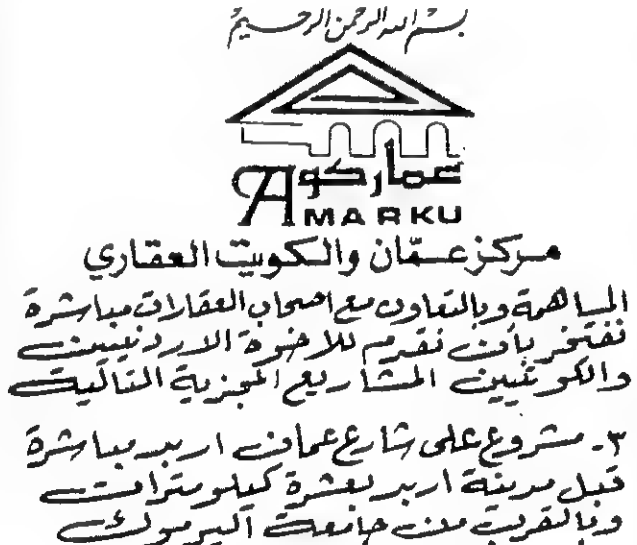 بسم الله الرحمن الرحيم
عماركو
AMARKU
مركز عمّان والكويت العقاري
المساهمة وبالتعاون مع اصحاب العقارات مباشرة
نفتخر بأن نقدم للاخوة الاردنيين
والكويتيين المشاريع المجزية التالية
٣- مشروع على شارع عمان اربد مباشرة
قبل مدينة اربد بعشرة كيلومترات
وبالقرب من جامعة اليرموك